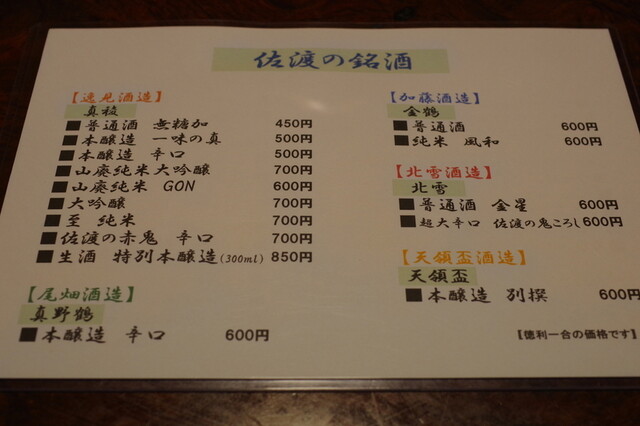 佐渡の銘酒
【逸見酒造】
真稜
■普通酒 無糖加 450円
■本醸造 一味の真 500円
■本醸造 辛口 500円
■山廃純米大吟醸 700円
■山廃純米 GON 600円
■大吟醸 700円
■至 純米 700円
■佐渡の赤鬼 辛口 700円
■生酒 特別本醸造(300ml) 850円
【尾畑酒造】
真野鶴
■本醸造 辛口 600円
【加藤酒造】
金鶴
■普通酒 600円
■純米 風和 600円
【北雪酒造】
北雪
■普通酒 金星 600円
■超大辛口 佐渡の鬼ころし 600円
【天領盃酒造】
天領盃
■本醸造 別撰 600円
【徳利一合の価格です】